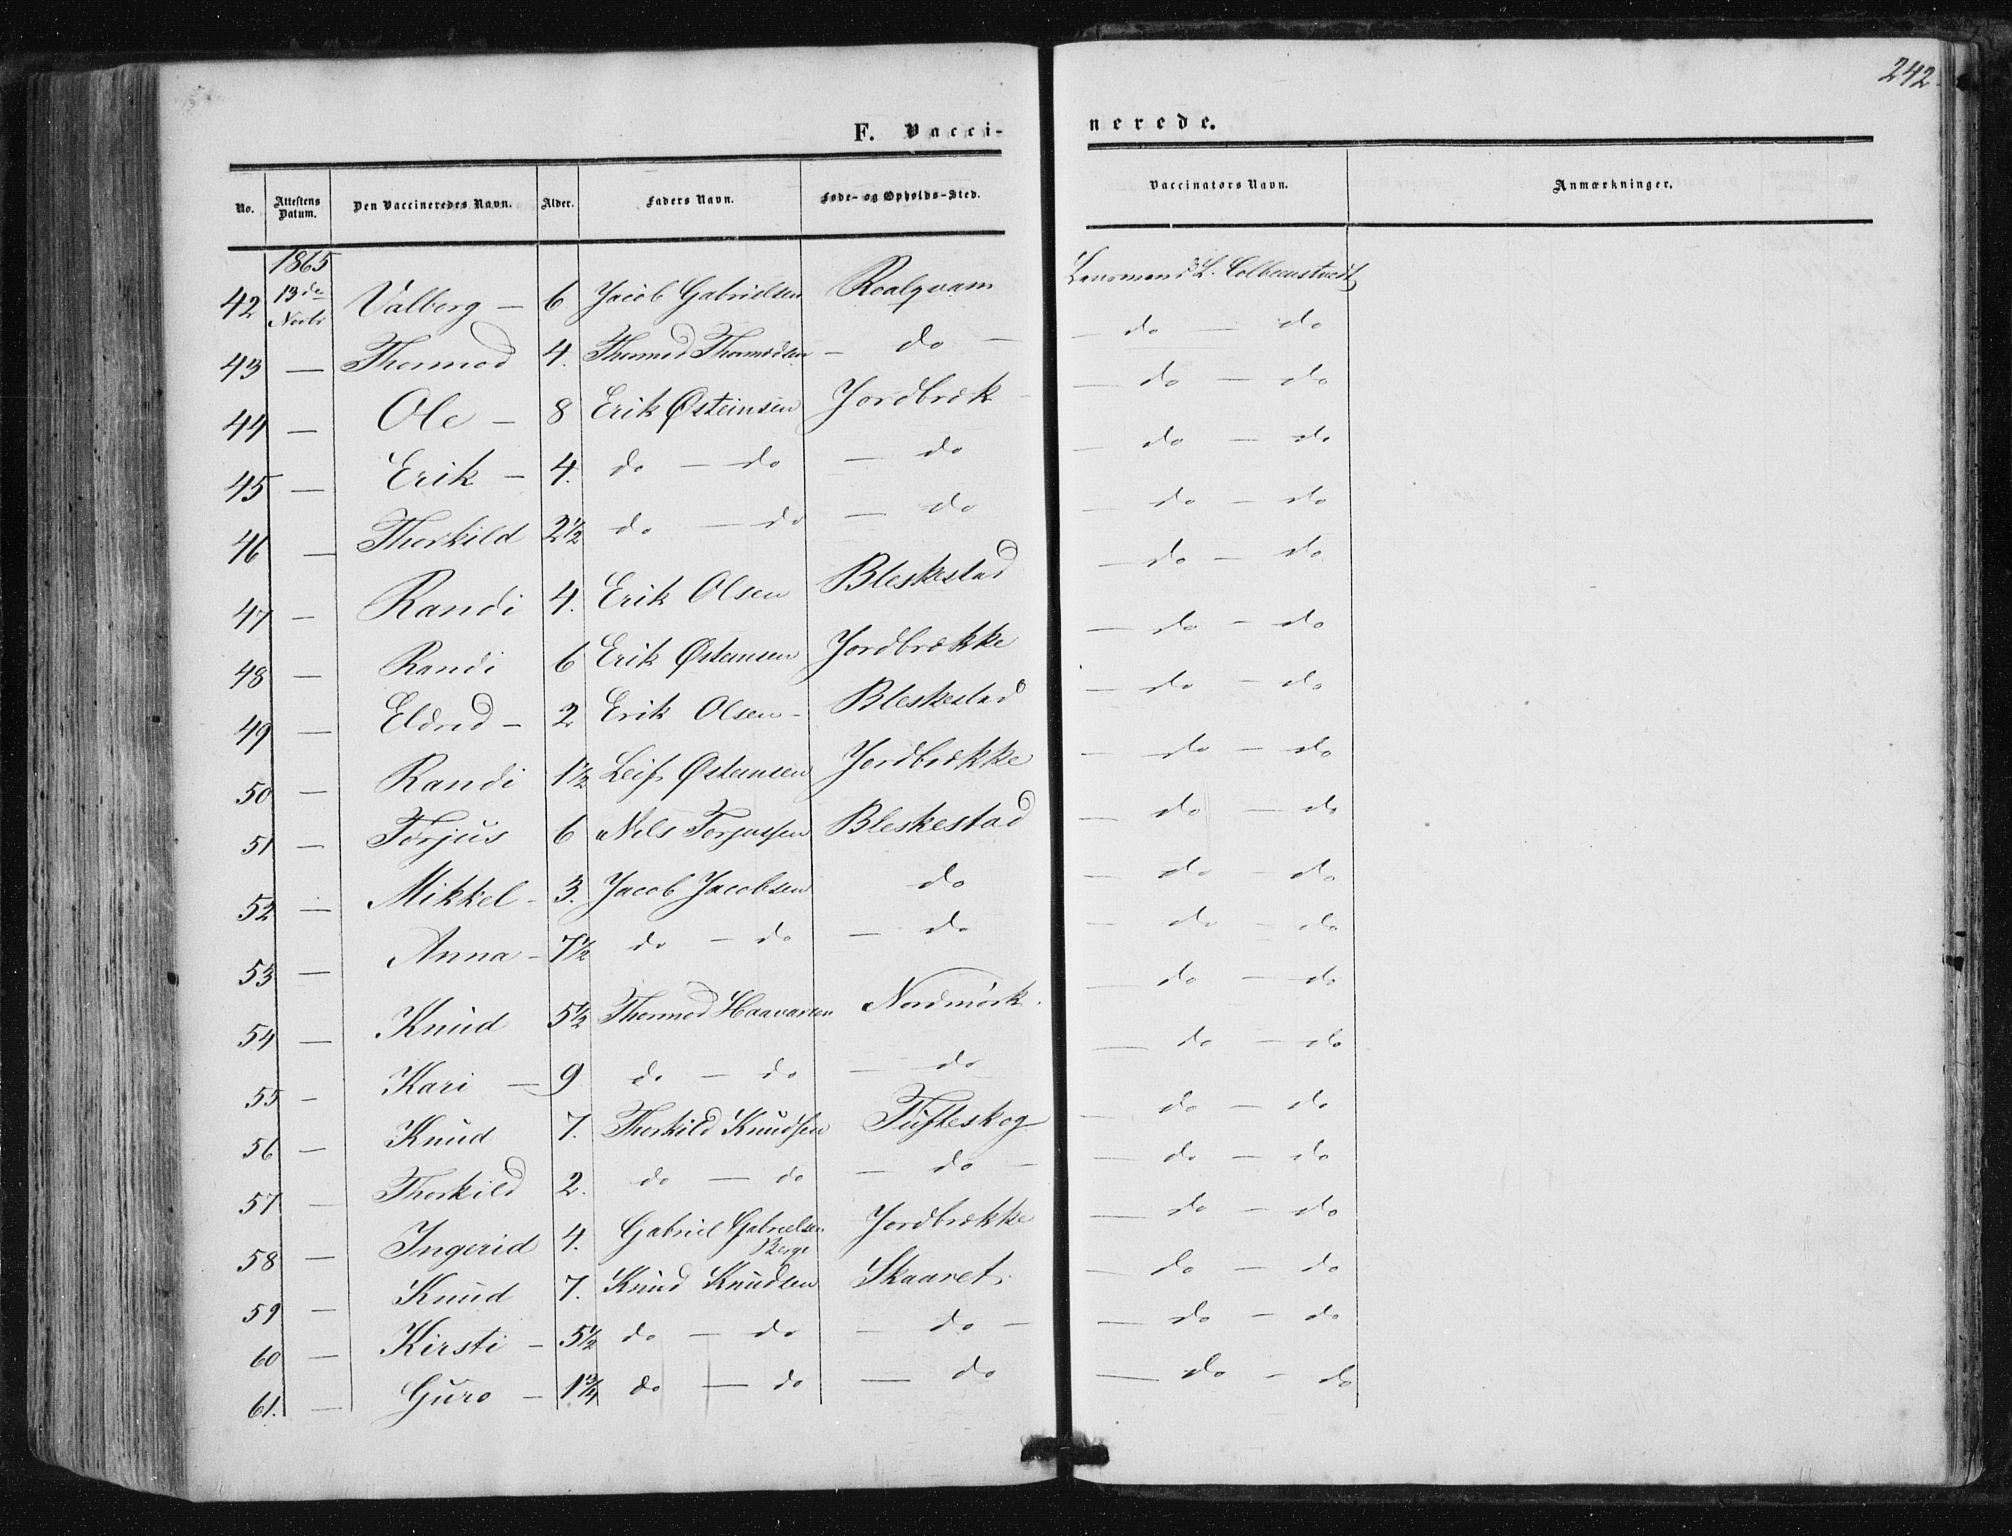 242
F. Vacci- nerede.
No. Attestens Datum. Den Vaccineredes Navn. Alder. Faders Navn. Føde- og Opholds-Sted. Vaccinators Navn. Anmærkninger.
1865
42 13de Novbr Valborg - 6 Jacob Gabrielsen Roalqvam Lensmand L.
43 — Thormod 4. Thormod Thormodsen - do - — do — do
44 — Ole - 8 Erik Østeinsen Jordbræk — do — do
45 — Erik - 4. do - do — do — do — do
46 — Thorkild 2½ do — do — do — do — do
47 — Randi 4. Erik Olsen Bleskestad — do — do
48 — Randi 6 Erik Østensen Jordbrække — do — do
49 — Eldrid - 2 Erik Olsen - Bleskestad — do — do
50 — Randi 1½ Leif Østensen Jordbrække — do — do
51 — Torjus 6 Nils Torjussen Bleskestad — do — do
52 — Mikkel - 3. Jacob Jacobsen do — do — do
53 — Anna - 7½ do - do — do — do — do
54 — Knud 5½ Thormod Haavarsen Nordmork. — do — do
55 — Kari — 9 do — do — do — do — do
56 — Knud 7. Thorkild Knudsen Tufteskog — do — do
57 — Thorkild 2. do — do — do — — do — do
58 — Ingerid 4. Gabriel Gabrielsen Berge Jordbrække — do — do
59 — Knud 7. Knud Knudsen Skaaret. — do — do
60 — Kirsti - 5½ do — do — do — — do — do
61. — Guro - 1¾ do — do — do — do — do